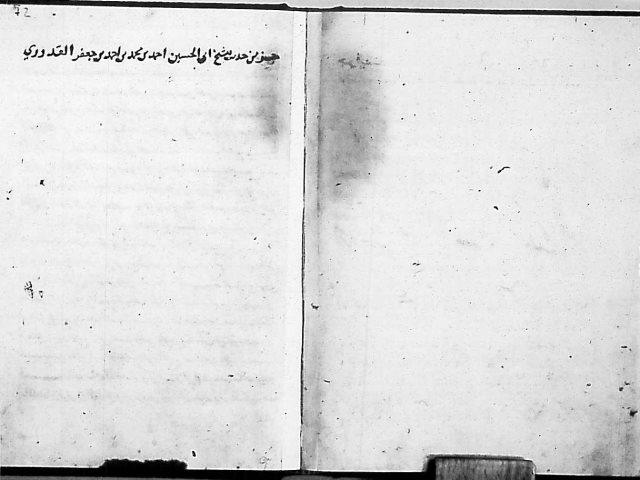 72
جزو من حديث الشيخ ابى الحسين احمد بن محمد بن احمد بن جعفر القدوري